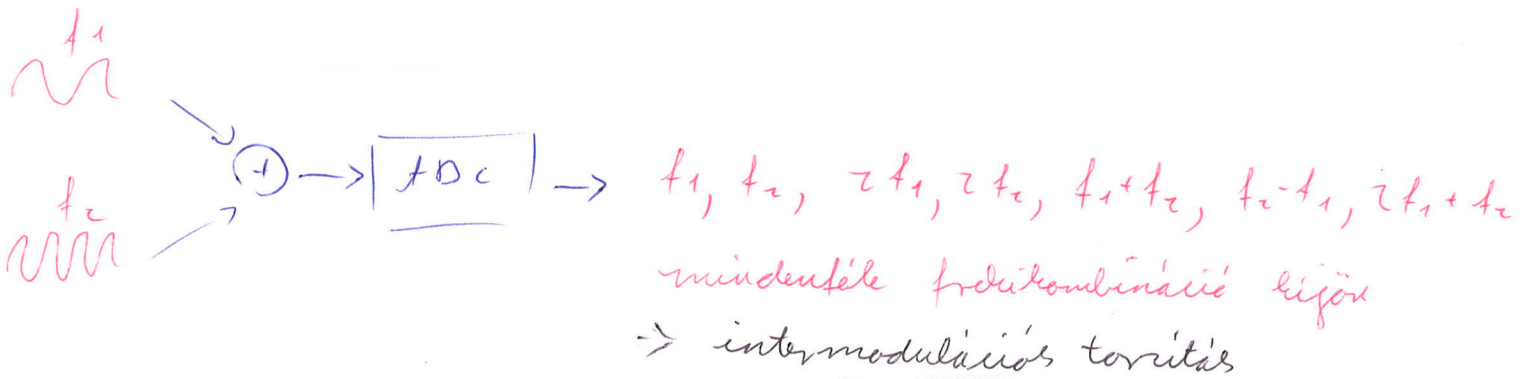 f1
f2
+
ADC
f1, f2, 2f1, 2f2, f1+f2, f2-f1, 2f1+f2
mindenféle frekikombináció kijön
-> intermodulációs torzítás